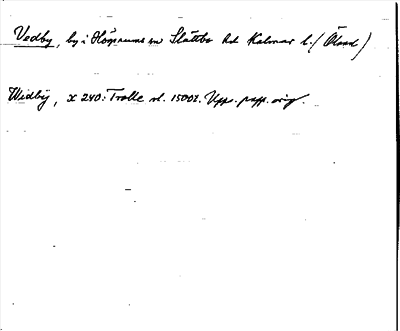 Vedby, by i Högsrums sn Slättbo hd Kalmar l. (Öland)
Widby, x 240: Trolle rl. 1500t. Upp. papp. orig.